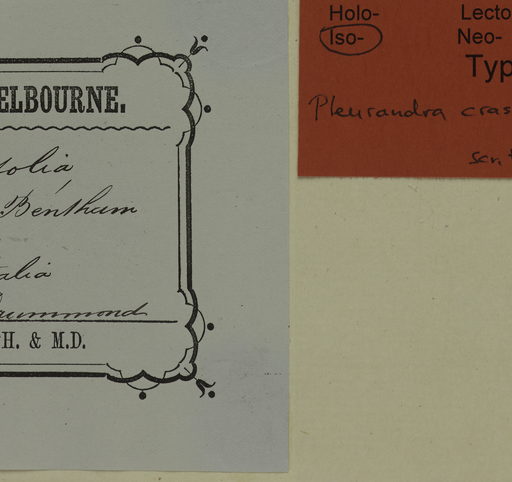 ELBOURNE.
folia
Bentham
alia
Drummond
H. & M.D.
Holo- Lecto
Iso- Neo-
Typ
Pleurandra cras